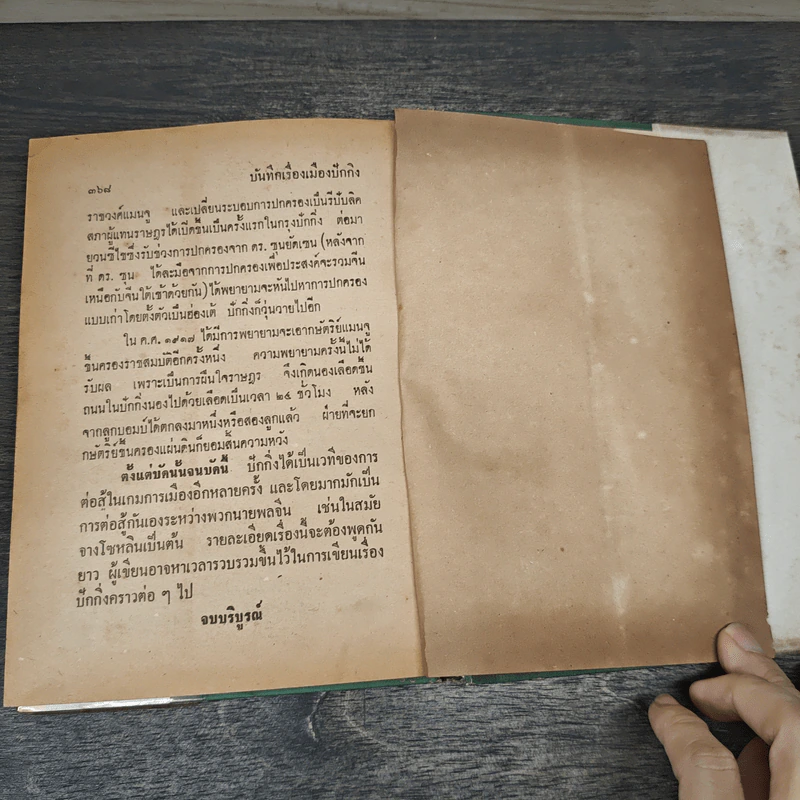 ๓๖๘ บันทึกเรื่องเมืองปักกิ่ง
ราชวงค์แมนจู และเปลี่ยนระบอบการปกครองเป็นรีปับลิค
สภาผู้แทนราษฎรได้เปิดขึ้นเป็นครั้งแรกในกรุงปักกิ่ง ต่อมา
ยวนซีไขซึ่งรับช่วงการปกครองจาก ดร. ซุนยัดเซน (หลังจาก
ที่ ดร. ซุน ได้ละมือจากการปกครองเพื่อประสงค์จะรวมจีน
เหนือกับจีนใต้เข้าด้วยกัน) ได้พยายามจะหันไปหาการปกครอง
แบบเก่าโดยตั้งตัวเป็นฮ่องเต้ ปักกิ่งก็วุ่นวายไปอีก
ใน ค.ศ. ๑๙๑๗ ได้มีการพยายามจะเอากษัตริย์แมนจู
ขึ้นครองราชสมบัติอีกครั้งหนึ่ง ความพยายามครั้งนี้ไม่ได้
รับผล เพราะเป็นการฝืนใจราษฎร จึงเกิดนองเลือดขึ้น
ถนนในปักกิ่งนองไปด้วยเลือดเป็นเวลา ๒๔ ชั่วโมง หลัง
จากลูกบอมบ์ได้ตกลงมาหนึ่งหรือสองลูกแล้ว ฝ่ายที่จะยก
กษัตริย์ขึ้นครองแผ่นดินก็ยอมสิ้นความหวัง
ตั้งแต่บัดนั้นจนบัดนี้ ปักกิ่งได้เป็นเวทีของการ
ต่อสู้ในเกมการเมืองอีกหลายครั้ง และโดยมากมักเป็น
การต่อสู้กันเองระหว่างพวกนายพลจีน เช่นในสมัย
จางโซหลินเป็นต้น รายละเอียดเรื่องนี้จะต้องพูดกัน
ยาว ผู้เขียนอาจหาเวลารวบรวมขึ้นไว้ในการเขียนเรื่อง
ปักกิ่งคราวต่อ ๆ ไป
จบบริบูรณ์